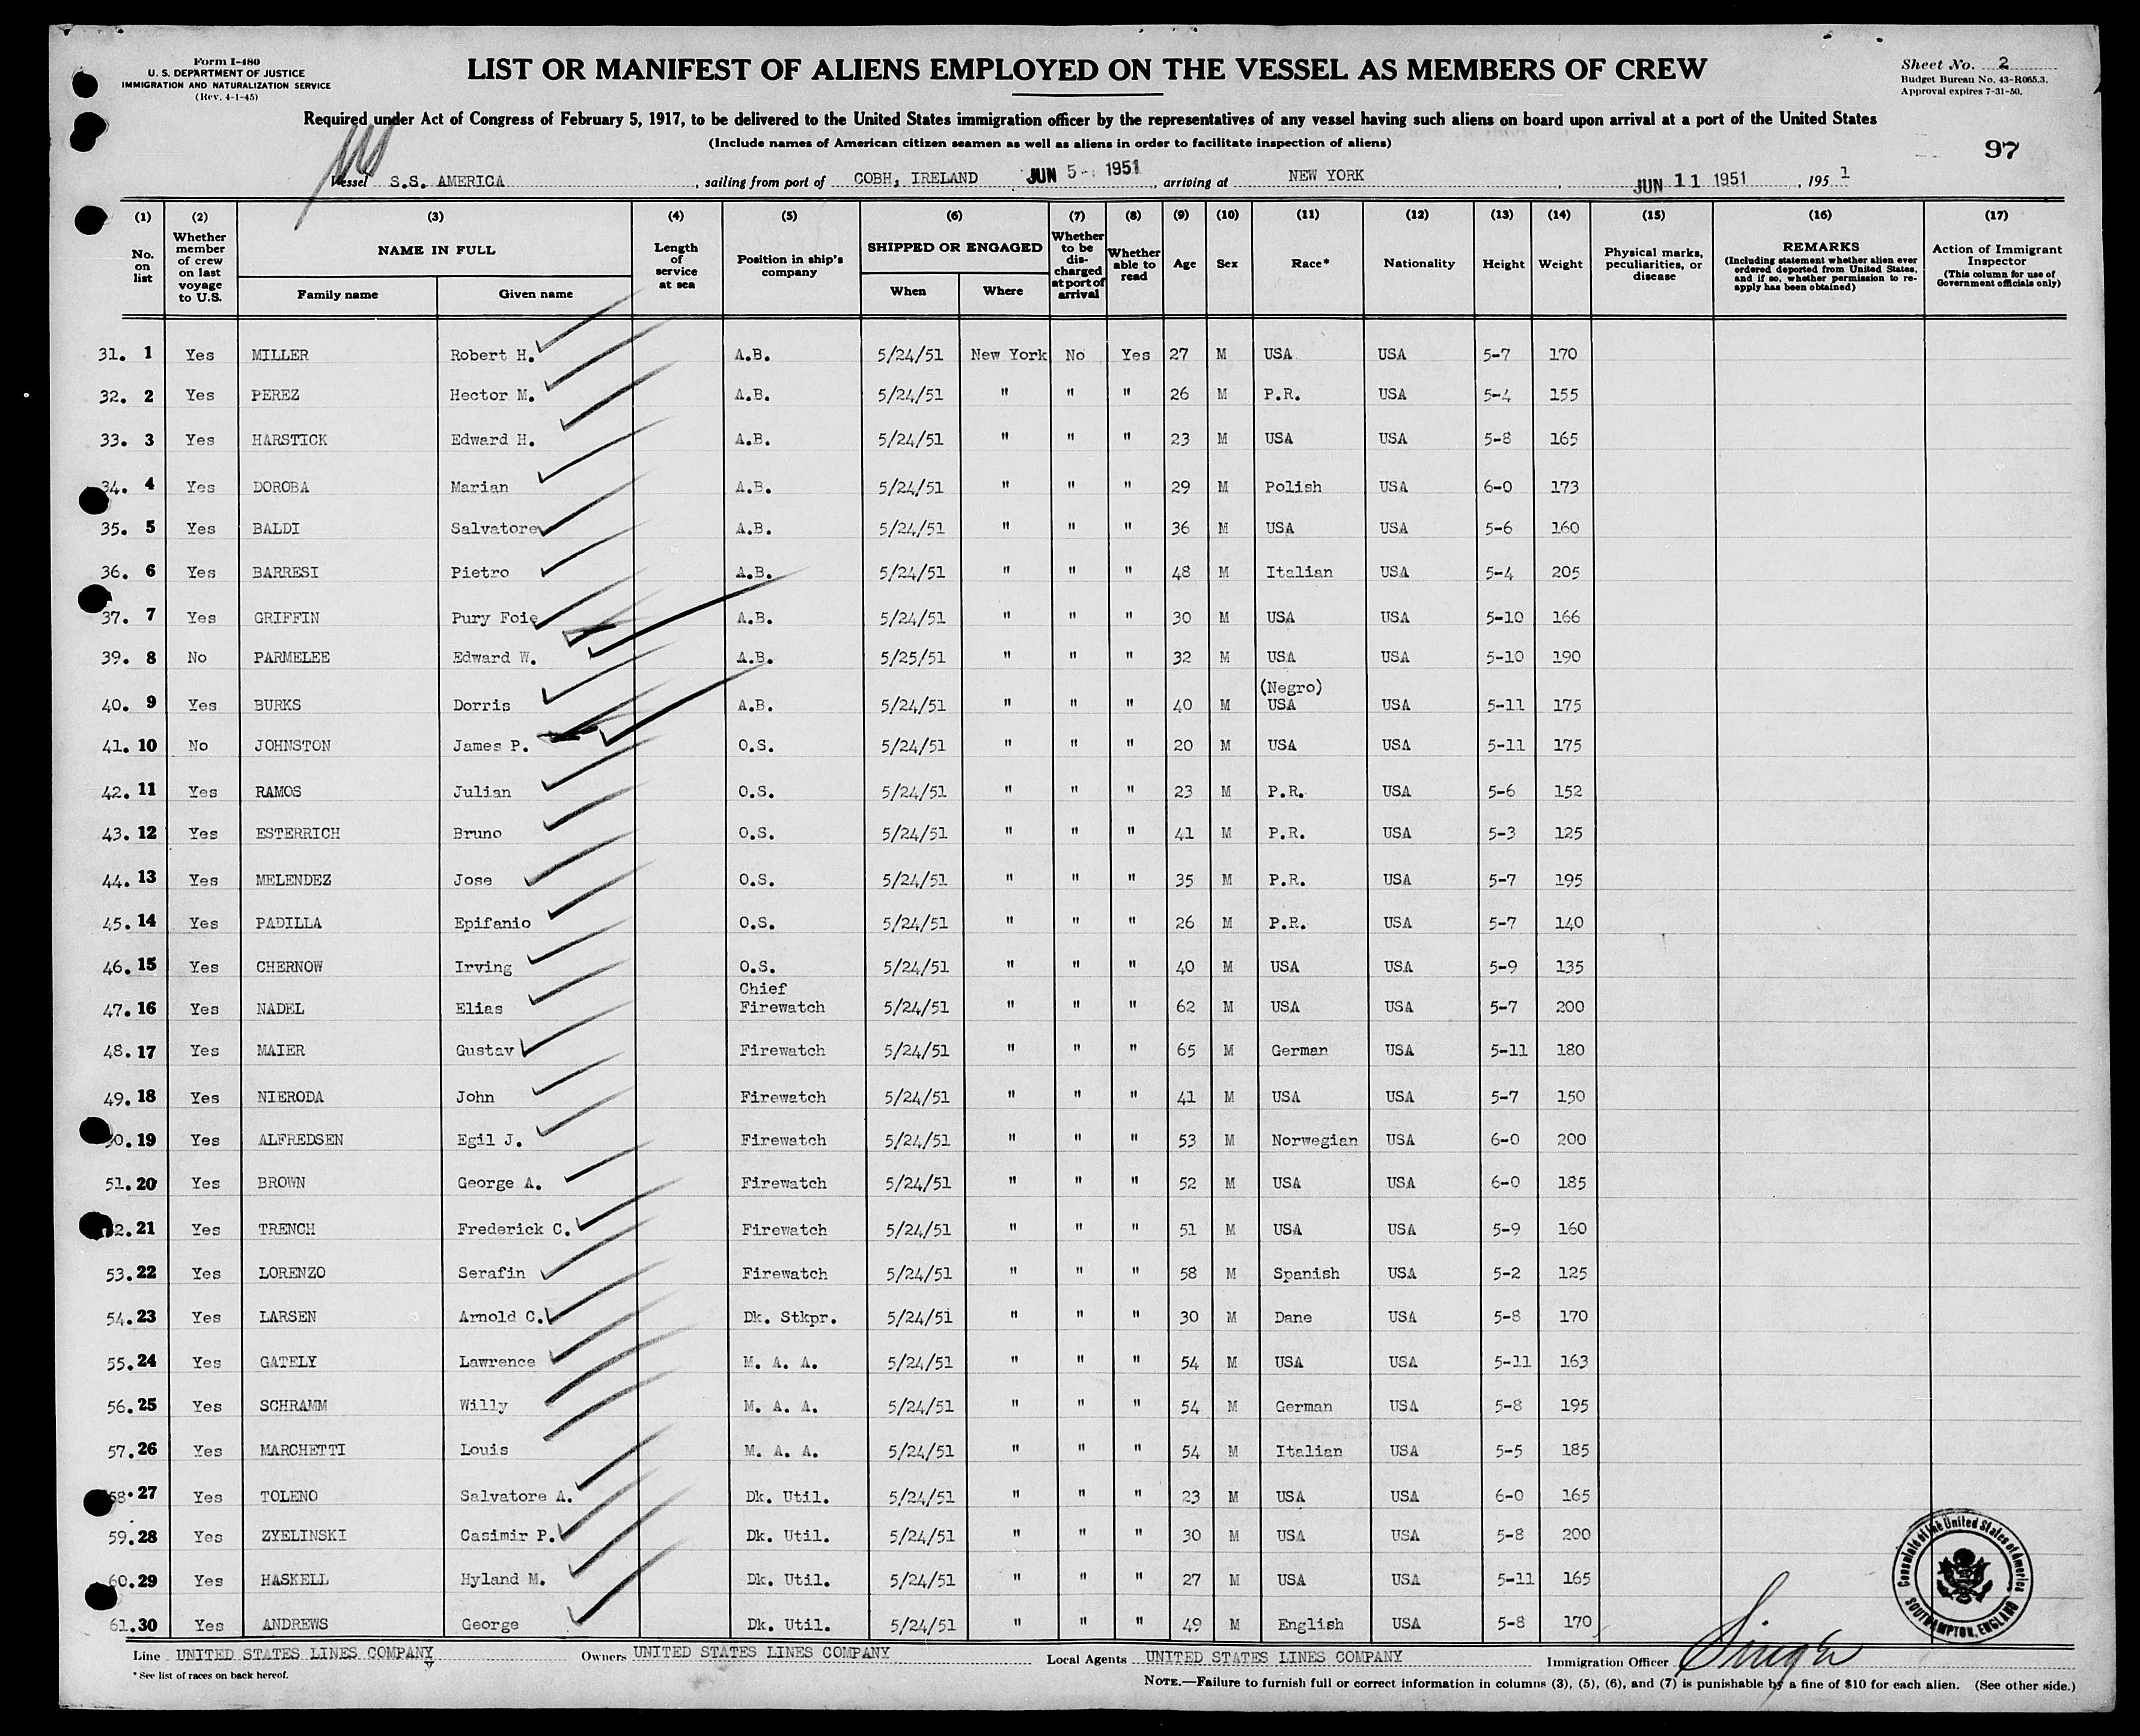 Form I-480
U. S. DEPARTMENT OF JUSTICE
IMMIGRATION AND NATURALIZATION SERVICE
(Rev. 4-1-45)
LIST OR MANIFEST OF ALIENS EMPLOYED ON THE VESSEL AS MEMBERS OF CREW
Sheet No. 2
Budget Bureau No. 43-R065.3.
Approval expires 7-31-50.
Required under Act of Congress of February 5, 1917, to be delivered to the United States immigration officer by the representatives of any vessel having such aliens on board upon arrival at a port of the United States
(Include names of American citizen seamen as well as aliens in order to facilitate inspection of aliens)
97
Vessel S.S. AMERICA, sailing from port of COBH, IRELAND JUN 5 - 1951, arriving at NEW YORK, JUN 11 1951, 195 1
(1) (2) (3) (4) (5) (6) (7) (8) (9) (10) (11) (12) (13) (14) (15) (16) (17)
No. on list
Whether member of crew on last voyage to U.S.
NAME IN FULL
Family name Given name
Length of service at sea
Position in ship's company
SHIPPED OR ENGAGED
When Where
Whether to be discharged at port of arrival
Whether able to read
Age Sex Race* Nationality Height Weight
Physical marks, peculiarities, or disease
REMARKS
(Including statement whether alien ever ordered deported from United States, and if so, whether permission to re-apply has been obtained)
Action of Immigrant Inspector
(This column for use of Government officials only)
31. 1 Yes MILLER Robert H. A.B. 5/24/51 New York No Yes 27 M USA USA 5-7 170
32. 2 Yes PEREZ Hector M. A.B. 5/24/51 " " " 26 M P.R. USA 5-4 155
33. 3 Yes HARSTICK Edward H. A.B. 5/24/51 " " " 23 M USA USA 5-8 165
34. 4 Yes DOROBA Marian A.B. 5/24/51 " " " 29 M Polish USA 6-0 173
35. 5 Yes BALDI Salvatore A.B. 5/24/51 " " " 36 M USA USA 5-6 160
36. 6 Yes BARRESI Pietro A.B. 5/24/51 " " " 48 M Italian USA 5-4 205
37. 7 Yes GRIFFIN Pury Foie A.B. 5/24/51 " " " 30 M USA USA 5-10 166
39. 8 No PARMELEE Edward W. A.B. 5/25/51 " " " 32 M USA USA 5-10 190
40. 9 Yes BURKS Dorris A.B. 5/24/51 " " " 40 M (Negro) USA USA 5-11 175
41. 10 No JOHNSTON James P. O.S. 5/24/51 " " " 20 M USA USA 5-11 175
42. 11 Yes RAMOS Julian O.S. 5/24/51 " " " 23 M P.R. USA 5-6 152
43. 12 Yes ESTERRICH Bruno O.S. 5/24/51 " " " 41 M P.R. USA 5-3 125
44. 13 Yes MELENDEZ Jose O.S. 5/24/51 " " " 35 M P.R. USA 5-7 195
45. 14 Yes PADILLA Epifanio O.S. 5/24/51 " " " 26 M P.R. USA 5-7 140
46. 15 Yes CHERNOW Irving O.S. 5/24/51 " " " 40 M USA USA 5-9 135
47. 16 Yes NADEL Elias Chief Firewatch 5/24/51 " " " 62 M USA USA 5-7 200
48. 17 Yes MAIER Gustav Firewatch 5/24/51 " " " 65 M German USA 5-11 180
49. 18 Yes NIERODA John Firewatch 5/24/51 " " " 41 M USA USA 5-7 150
0. 19 Yes ALFREDSEN Egil J. Firewatch 5/24/51 " " " 53 M Norwegian USA 6-0 200
51. 20 Yes BROWN George A. Firewatch 5/24/51 " " " 52 M USA USA 6-0 185
2. 21 Yes TRENCH Frederick C. Firewatch 5/24/51 " " " 51 M USA USA 5-9 160
53. 22 Yes LORENZO Serafin Firewatch 5/24/51 " " " 58 M Spanish USA 5-2 125
54. 23 Yes LARSEN Arnold C. Dk. Stkpr. 5/24/51 " " " 30 M Dane USA 5-8 170
55. 24 Yes GATELY Lawrence M. A. A. 5/24/51 " " " 54 M USA USA 5-11 163
56. 25 Yes SCHRAMM Willy M. A. A. 5/24/51 " " " 54 M German USA 5-8 195
57. 26 Yes MARCHETTI Louis M. A. A. 5/24/51 " " " 54 M Italian USA 5-5 185
58. 27 Yes TOLENO Salvatore A. Dk. Util. 5/24/51 " " " 23 M USA USA 6-0 165
59. 28 Yes ZYELINSKI Casimir P. Dk. Util. 5/24/51 " " " 30 M USA USA 5-8 200
60. 29 Yes HASKELL Hyland M. Dk. Util. 5/24/51 " " " 27 M USA USA 5-11 165
61. 30 Yes ANDREWS George Dk. Util. 5/24/51 " " " 49 M English USA 5-8 170
Consulate of the United States of America
SOUTHAMPTON, ENGLAND
Line UNITED STATES LINES COMPANY Owners UNITED STATES LINES COMPANY Local Agents UNITED STATES LINES COMPANY Immigration Officer
* See list of races on back hereof.
NOTE.—Failure to furnish full or correct information in columns (3), (5), (6), and (7) is punishable by a fine of $10 for each alien. (See other side.)